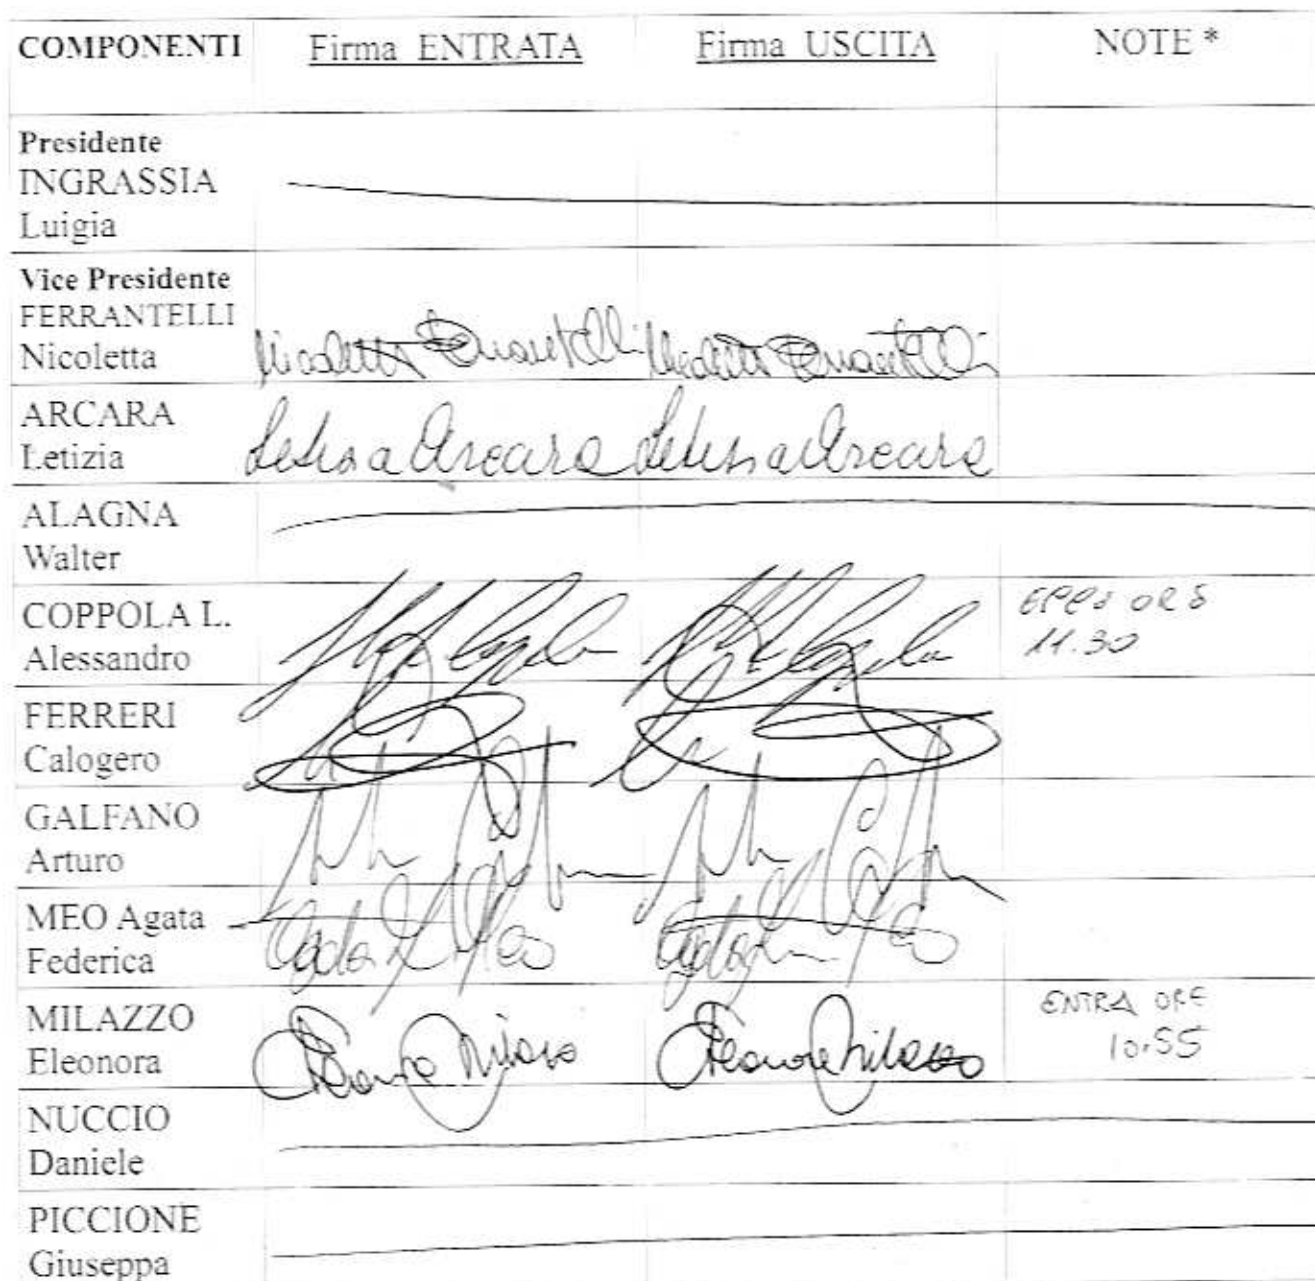 COMPONENTI Firma ENTRATA Firma USCITA NOTE *
Presidente
INGRASSIA
Luigia
Vice Presidente
FERRANTELLI
Nicoletta Nicoletta Ferrantelli Nicoletta Ferrantelli
ARCARA
Letizia Letizia Arcara Letizia Arcara
ALAGNA
Walter
COPPOLA L. ORE
Alessandro 11.30
FERRERI
Calogero
GALFANO
Arturo
MEO Agata
Federica
MILAZZO ENTRA ORE
Eleonora Eleonora Milazzo Eleonora Milazzo 10.55
NUCCIO
Daniele
PICCIONE
Giuseppa